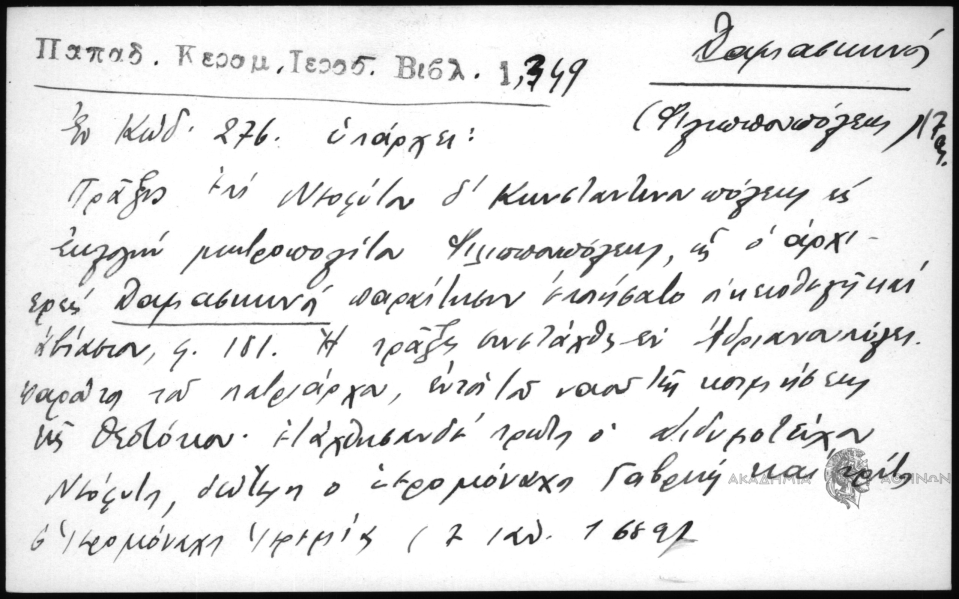 Παπαδ. Κεραμ, Ιεροσ. Βιβλ. 1,349
Δαμασκηνός
(Φιλιππουπόλεως)
Ἐν Κώδ. 276. ὑπάρχει:
Πρᾶξις ἐπὶ Νεοφύτου δ' Κωνσταντινουπόλεως εἰς
ἐκλογὴν μητροπολίτου Φιλιππουπόλεως, ἧς ὁ ἀρχι-
ερεὺς Δαμασκηνὸς παραίτησιν ἐποιήσατο οἰκειοθελῆ καὶ
ἀβίαστον, φ. 181. Ἡ πρᾶξις συνετάχθη ἐν Ἀδριανουπόλει
παρόντος τοῦ πατριάρχου, ἐντὸς τοῦ ναοῦ τῆς κοιμήσεως
τῆς Θεοτόκου. ἐτάχθησαν δὲ πρῶτος ὁ Διδυμοτείχου
Νεόφυτος, δεύτερος ὁ ἱερομόναχος Γαβριὴλ καὶ τρίτος
ὁ ἱερομόναχος Ἱερεμίας (7 Ιαν. 1689)
ΑΚΑΔΗΜΙΑ ΑΘΗΝΩΝ